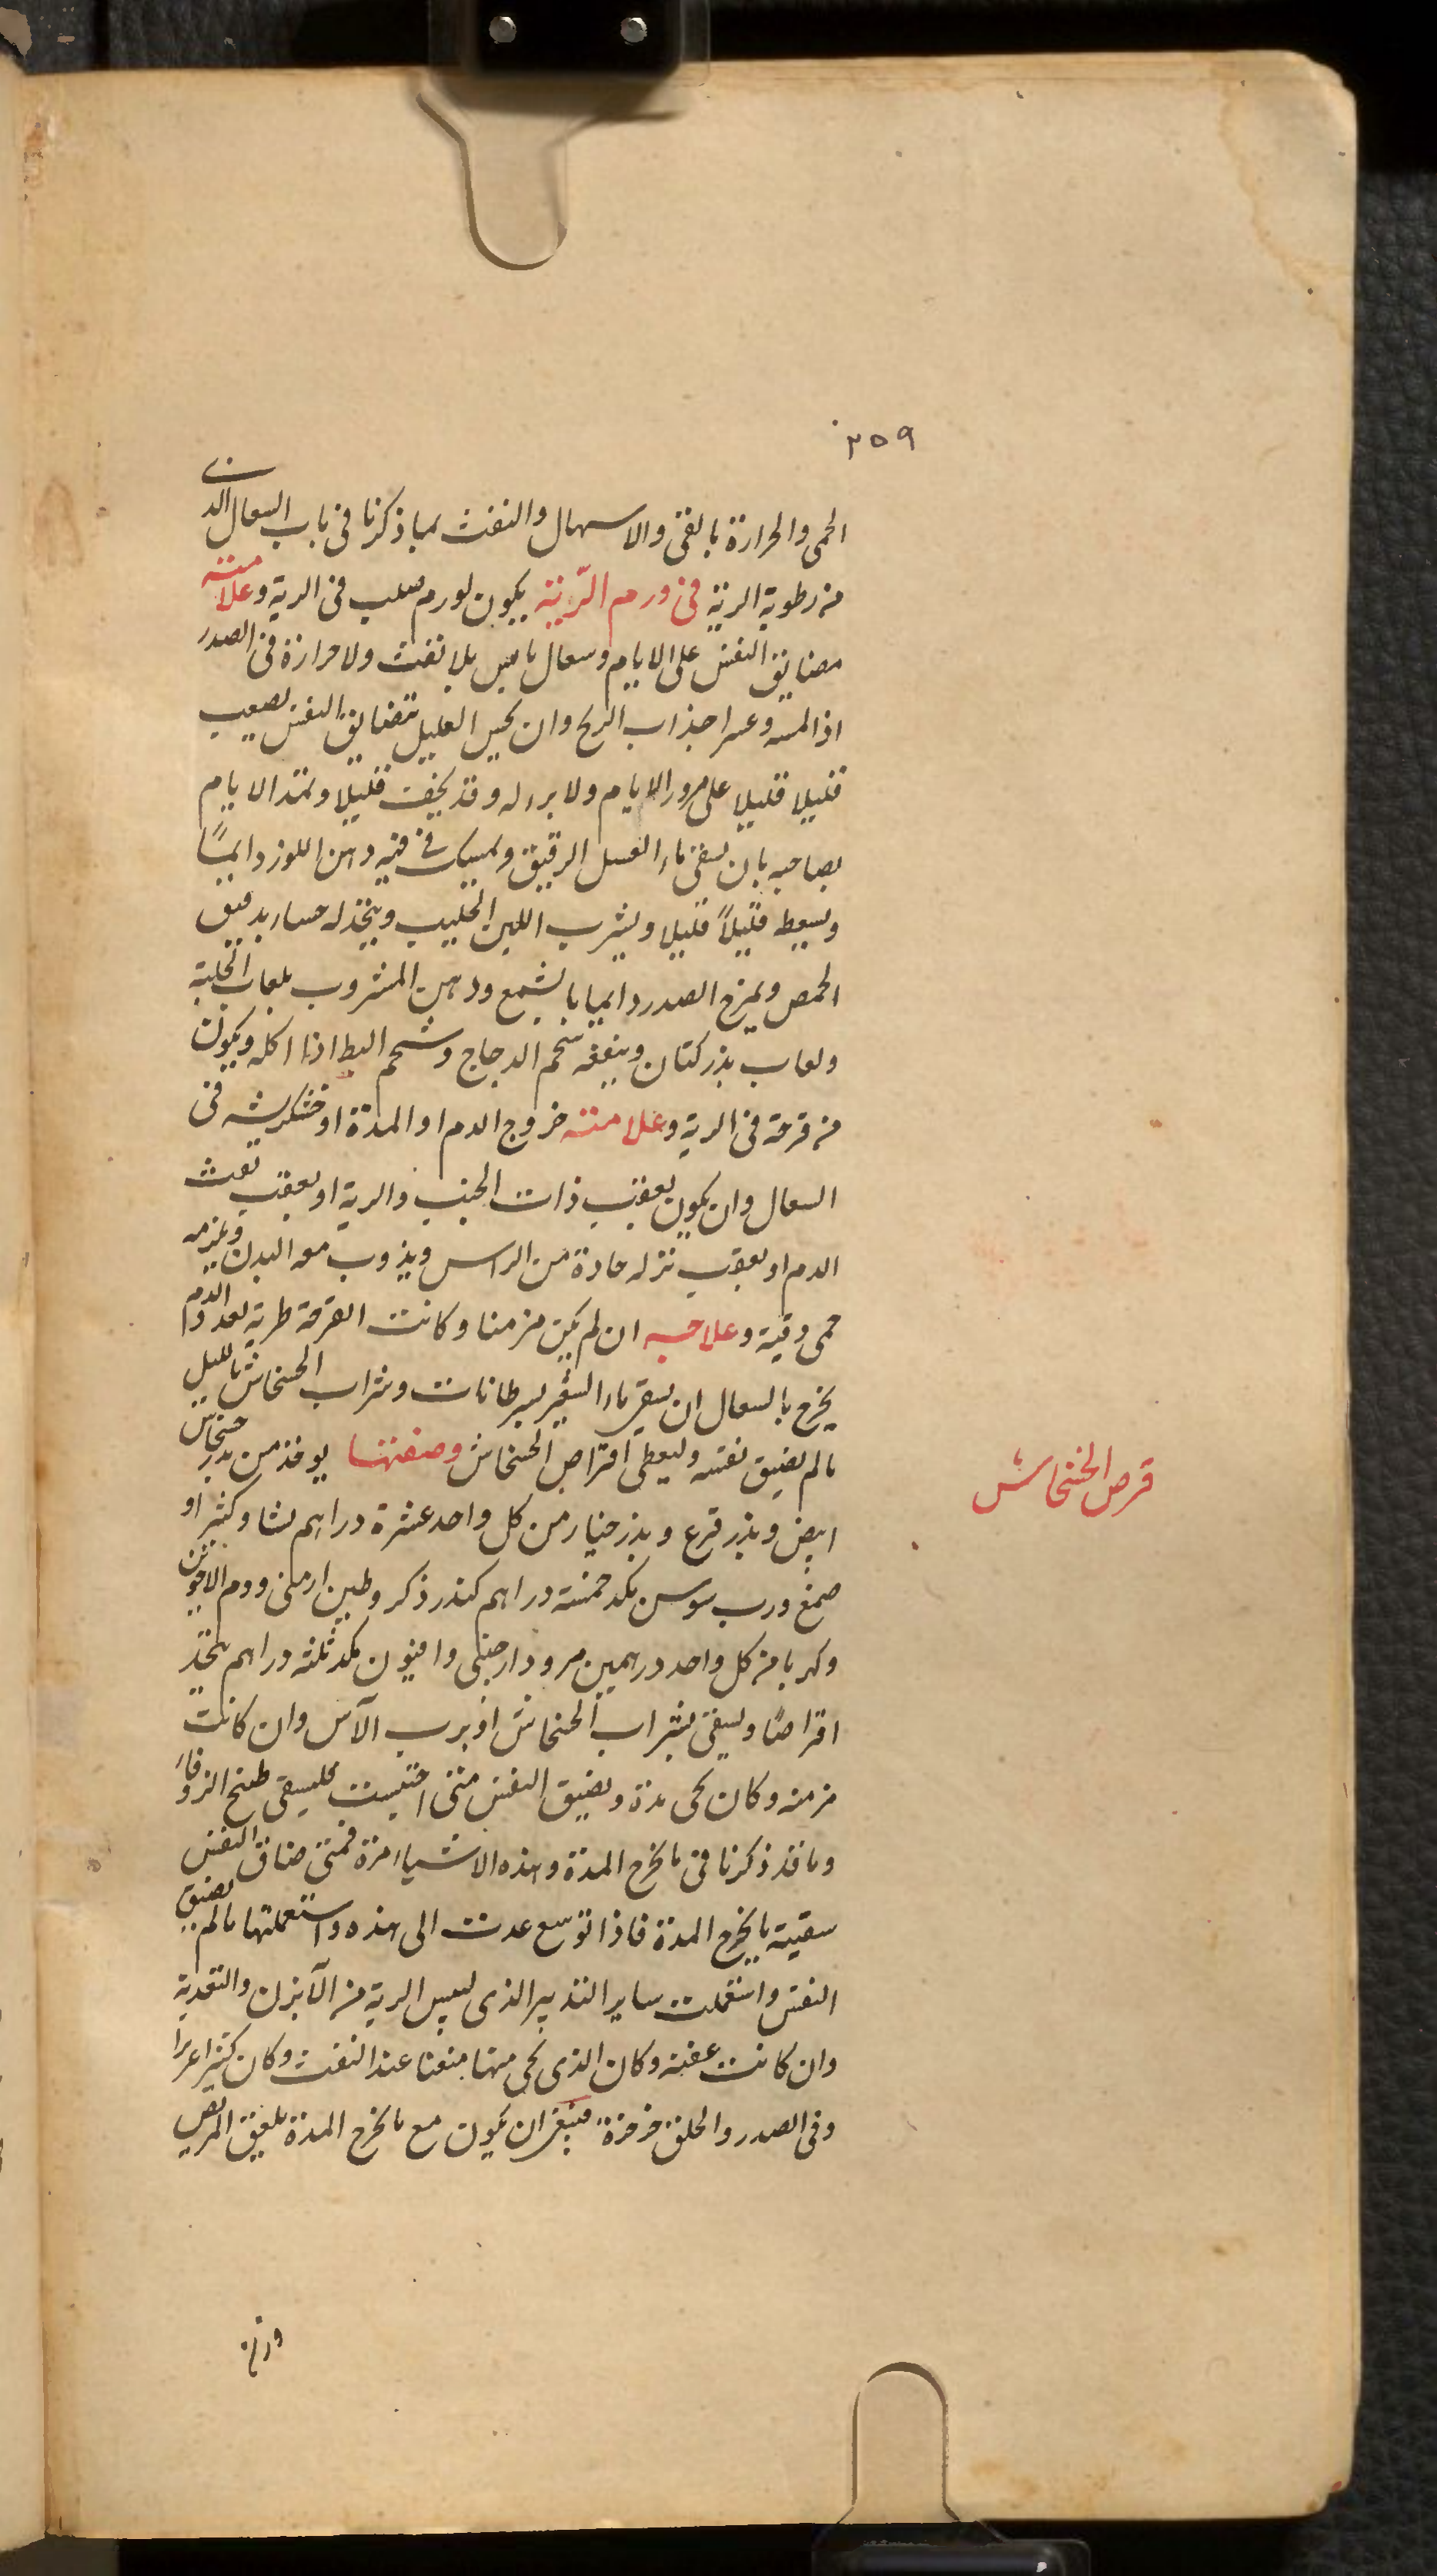 ٢٥٩
الحمى والحرارة بالقئ والاسهال والنفث بما ذكرنا فى باب السعال الذى
من رطوبة الرية فى ورم الرّية يكون لورم صلب فى الرية وعلامته
مضايق النفس على الايام وسعال يابس بلا نفث ولا حرارة فى الصدر
اذا لمسه وعسر اجذاب الريح وان يحس العليل بتضايق النفس يصعب
قليلا قليلا على مرور الايام ولا برء له وقد يخفف قليلا وتمتد الايام
بصاحبه بان يسقى ماء العسل الرقيق ويمسك فى فيه دهن اللوز دايمًا
ويسعط قليلاً قليلا ويشرب اللبن الحليب ويتخذ له حساء بدقيق
الحمص ويمرخ الصدر دايما بالشمع ودهن المشروب بلعاب الحلبة
ولعاب بذر كتان وينفعه شحم الدجاج وشحم البط اذا اكله ويكون
من قرحة فى الرية وعلامته خروج الدم او المدة او خشكريشه فى
السعال وان يكون بعقب ذات الجنب والرية او بعقب نفث
الدم او بعقب نزله حادة من الراس ويذوب معه البدن ويلزمه
حمى دقية وعلاجه ان لم يكن مزمنا وكانت القرحة طرية بعد والدم
يخرج بالسعال ان يسقى ماء الشعير بسرطانات وشراب الخشخاش بالليل
مالم يضيق نفسه وليعطى اقراص الخشخاش وصفتها يوخذ من بذر خشخاش
ابيض وبذر قرع وبذر خيار من كل واحد عشرة دراهم نشا وكثيرا و
صمغ ورب سوس مكد خمسة دراهم كندر ذكر وطين ارمنى ودم الاخوين
وكهربا من كل واحد درهمين مر ودارصينى وافيون مكد ثلثه دراهم يتخذ
اقراصًا ويسقى بشراب الخشخاش او برب الآس وان كانت
مزمنه وكان يجى مدة ويضيق النفس متى احتبست فليسقى طبيخ الزوفاء
وما قد ذكرنا فى ما يخرج المدة وهذه الاشياء مرة فمتى ضاق النفس
سقيته ما يخرج المدة فاذا توسع عدت الى هذه واستعملتها مالم يضيق
النفس واستعملت ساير التدبير الذى ليبس الرية من الآبزن والتغدية
وان كانت عفنه وكان الذى يجى منها منتنا عند النفث وكان كثيرا
وفى الصدر والحلق خرخرة فينبغى ان يكون مع ما يخرج المدة بلعق المريض
قرص الخشخاش